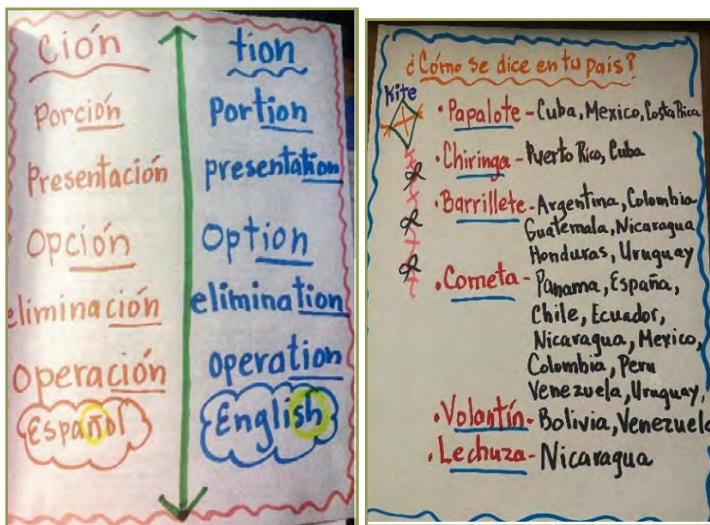 Ción tion
Porción Portion
Presentación presentation
Opción Option
eliminación elimination
Operación operation
Español English
¿Cómo se dice en tu país?
Kite
• Papalote - Cuba, Mexico, Costa Rica
• Chiringa - Puerto Rico, Cuba
• Barrillete - Argentina, Colombia
Guatemala, Nicaragua
Honduras, Uruguay
• Cometa - Panama, España,
Chile, Ecuador,
Nicaragua, Mexico,
Colombia, Peru
Venezuela, Uruguay,
• Volantín - Bolivia, Venezuela
• Lechuza - Nicaragua